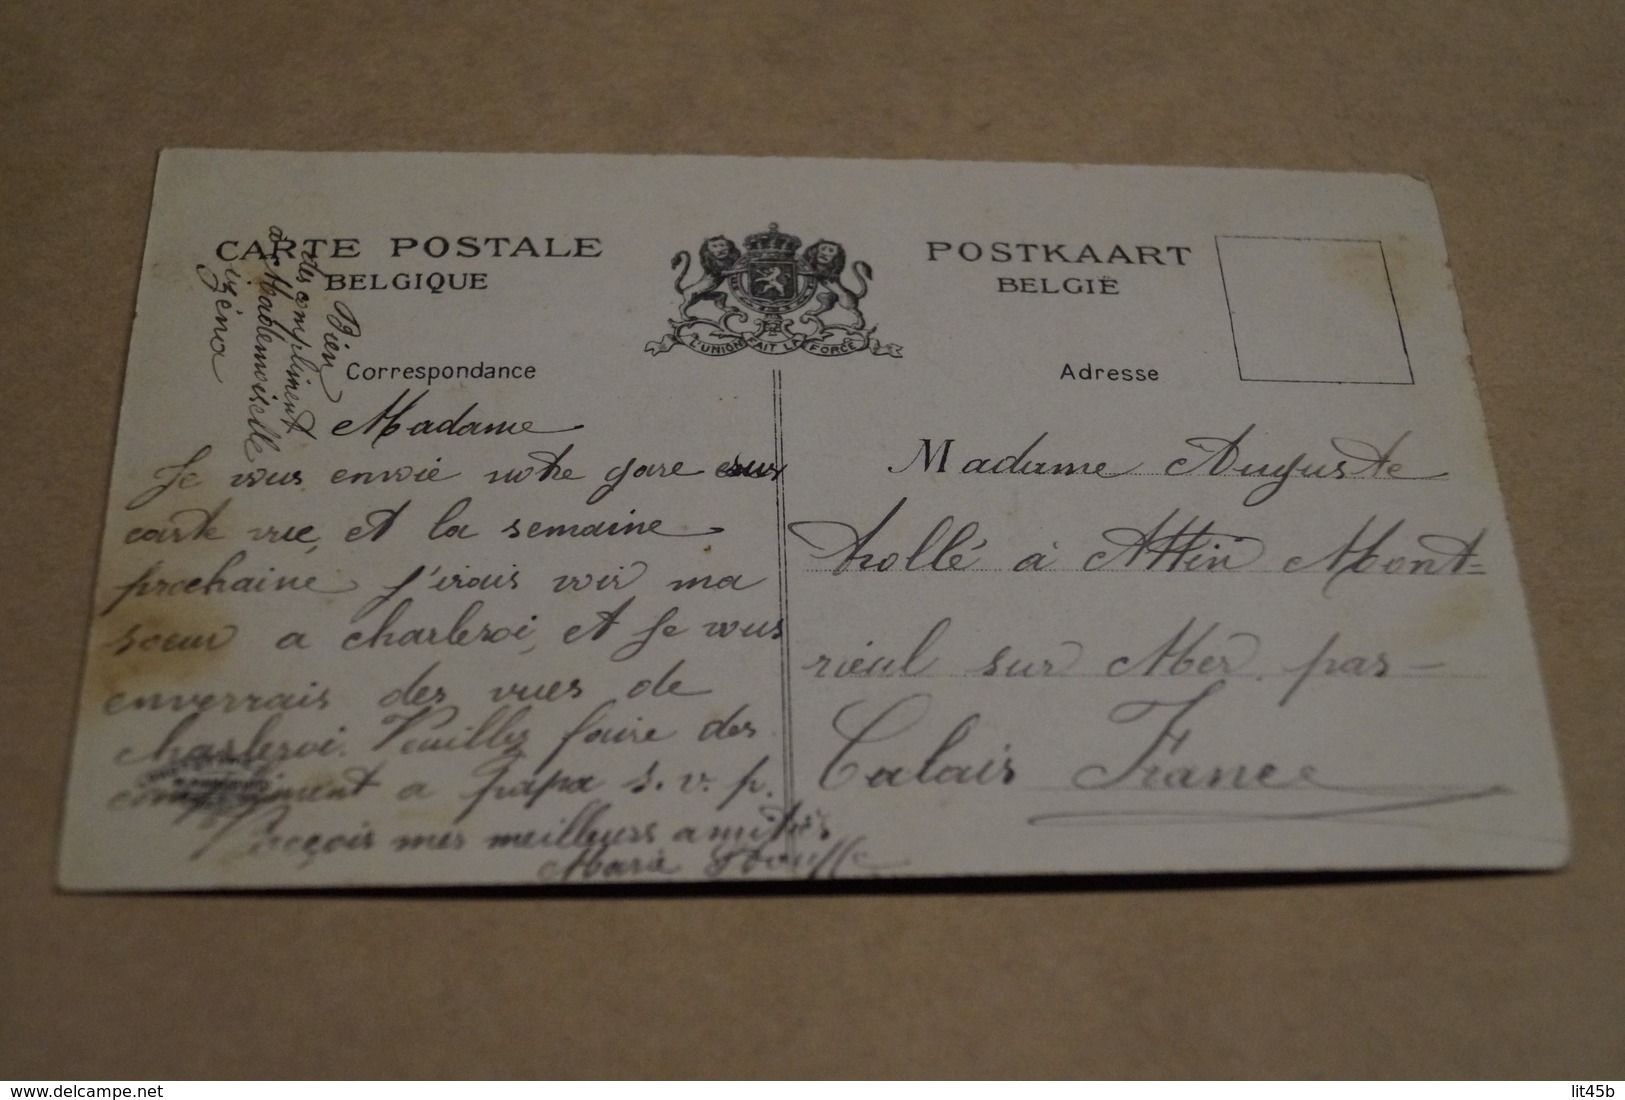 CARTE POSTALE
BELGIQUE
POSTKAART
BELGIË
L'UNION FAIT LA FORCE
Correspondance
Adresse
Bien
des compliment
à Mademoiselle
izéna
Madame
Je vous envoie notre gare sur
carte vue, et la semaine
prochaine j'irais voir ma
sœur a charleroi, et je vous
enverrais des vues de
charleroi. Veuillez faire des
compliment a papa s.v.p.
Reçois mes meilleurs amitiés
Maria
Madame Auguste
trollé à Attin Mont-
rieul sur Mer. pas-
Calais France
delcampe.net
lit45b